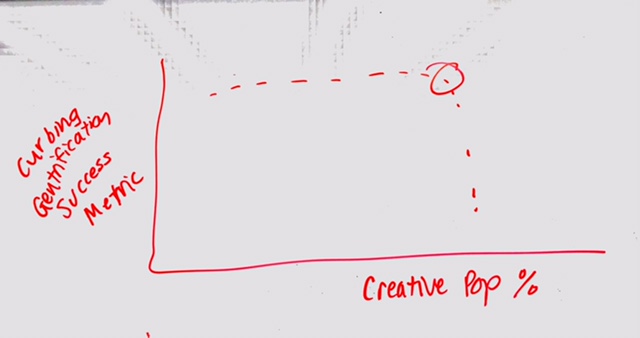 Curbing
Gentrification
Success
Metric
Creative Pop %